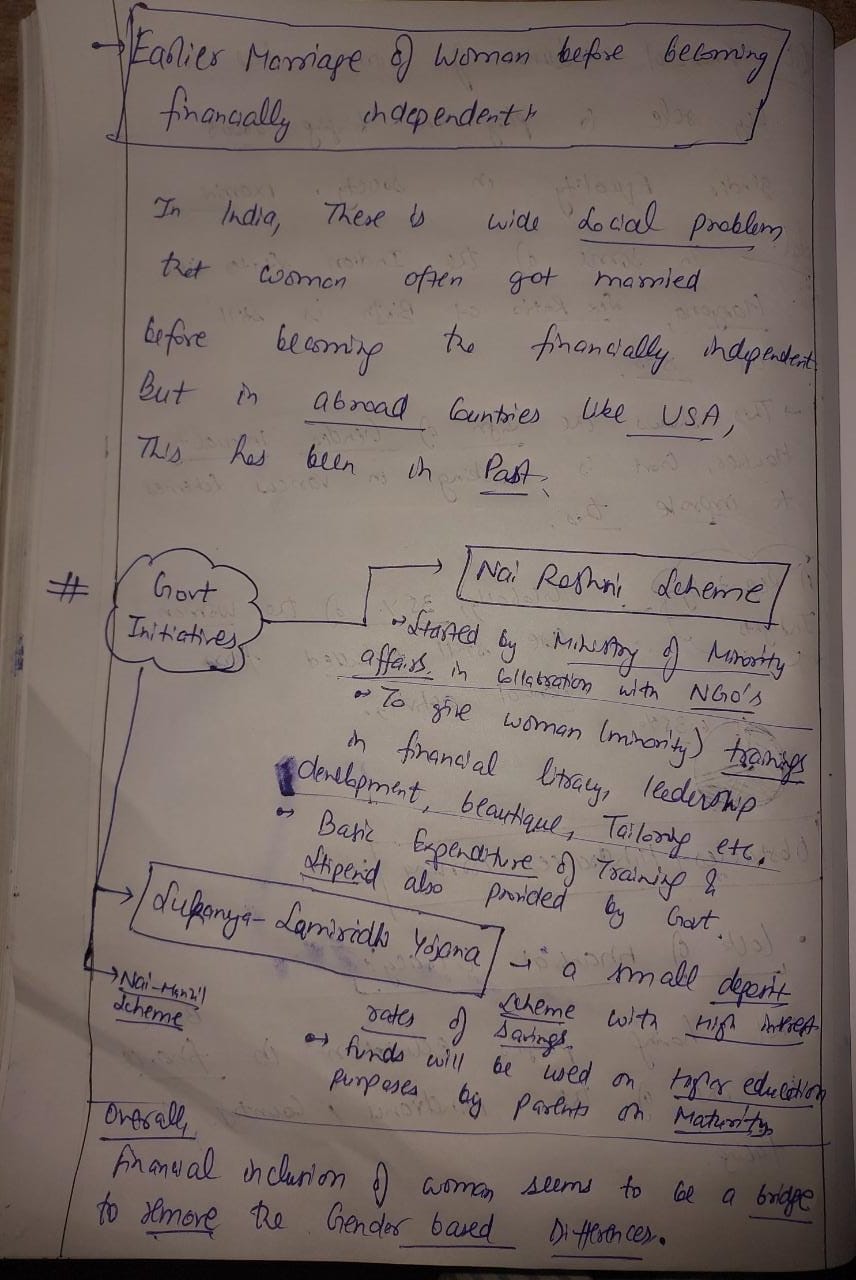 Earlier Marriage of Woman before becoming
financially independent
In India, There is wide Social problem
that woman often got married
before becoming the financially independent
But in abroad Countries like USA,
This has been in Past.
#
Govt
Initiatives
Nai Roshni Scheme
Started by Ministry of Minority
affairs in Collabration with NGO's
To give woman (minority) trainings
in financial litracy, leedership
development, beautique, Tailoring etc.
Basic Expenditure of Training &
Stipend also provided by Govt.
Sukanya-Samiridhi Yojana → a small deposit
Nai-Manzil
Scheme
Scheme with High interest
rates of Savings
funds will be used on Higher education
purposes by Parents on Maturity
Overall
financial inclusion of woman seems to be a bridge
to remove the Gender based Differences.